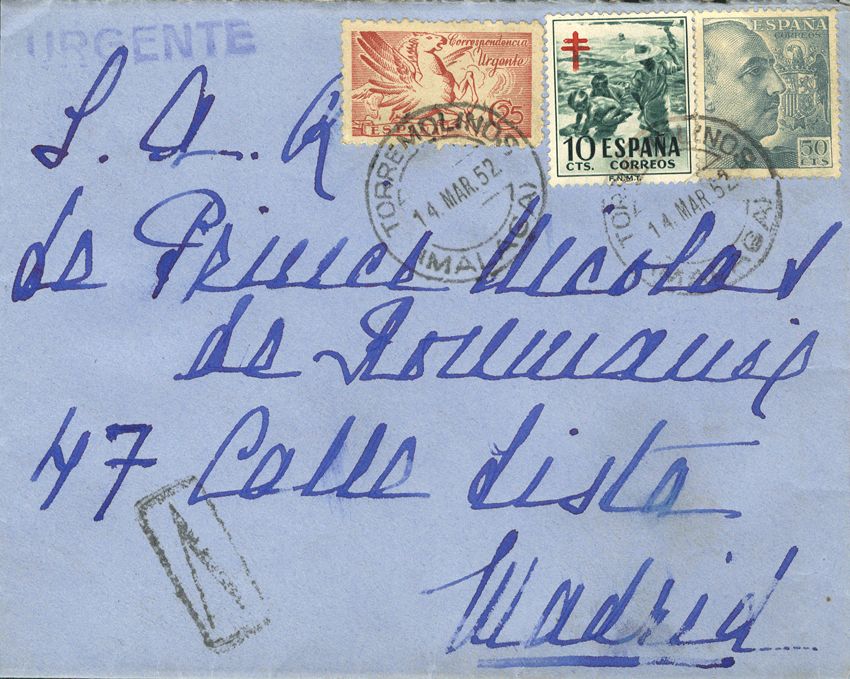 URGENTE
Correspondencia
Urgente
25
ESPAÑA
10 ESPAÑA
CTS. CORREOS
F.N.M.T.
ESPAÑA
CORREOS
50
CTS
TORREMOLINOS
14 MAR.52
(MALAGA)
TORREMOLINOS
14 MAR.52
(MALAGA)
S. A. R
le Prince Nicolas
de Roumanie
47 Calle Lista
Madrid